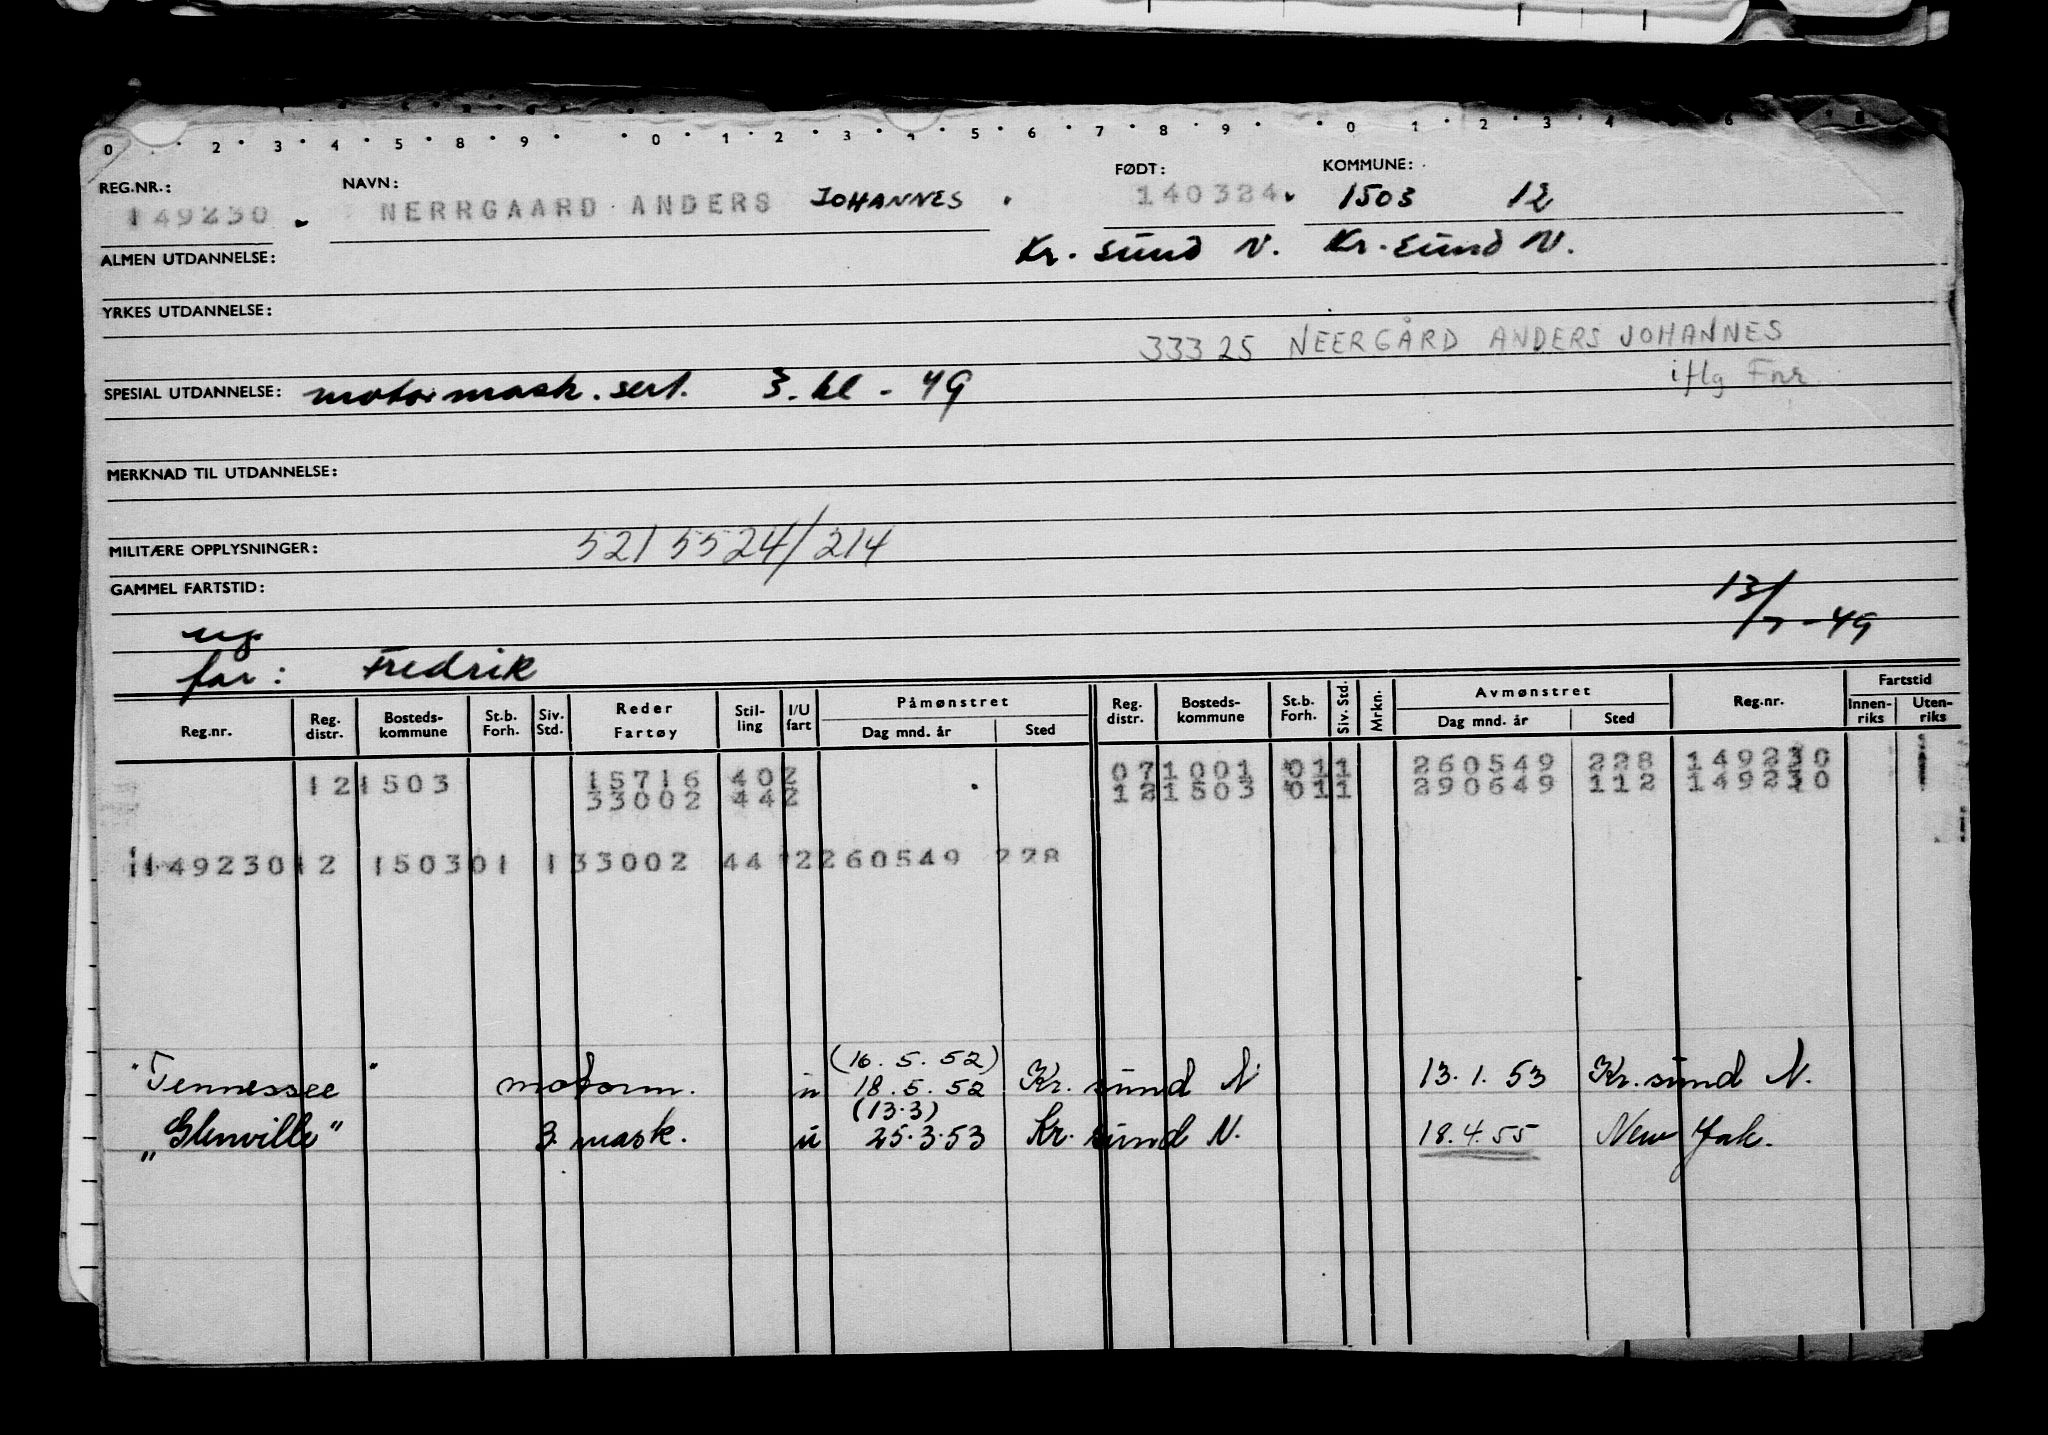 0 2 3 4 5 8 9 0 1 2 3 4 5 6 7 8 9 0 1 2 3 4 6 8
REG.NR.: NAVN: FØDT: KOMMUNE:
149230 NERRGAARD ANDERS JOHANNES 140324 1503 12
ALMEN UTDANNELSE: Kr. sund N. Kr. sund N.
YRKES UTDANNELSE:
33325 NEERGÅRD ANDERS JOHANNES
iflg Fnr
SPESIAL UTDANNELSE: motormask. sert. 3. kl - 49
MERKNAD TIL UTDANNELSE:
MILITÆRE OPPLYSNINGER: 5215524/214
GAMMEL FARTSTID:
13/7-49
ug
far: Fredrik
Reg.nr. Reg. distr. Bosteds-kommune St.b. Forh. Siv. Std. Reder Fartøy Stil-ling I/U fart Påmønstret Dag mnd. år Sted Reg. distr. Bosteds-kommune St.b. Forh. Siv. Std. Mrkn. Avmønstret Dag mnd. år Sted Reg.nr. Fartstid Innen-riks Uten-riks
15716 402 071001 011 260549 228 149230
121503 33002 442 121503 011 290649 112 149230
149230 12 150301 133002 44 2260549 228
(16.5.52)
"Tennessee" motorm. u 18.5.52 Kr. sund N 13.1.53 Kr. sund N.
(13.3)
"Glenville" 3 mask. u 25.3.53 Kr. sund N. 18.4.55 New York.